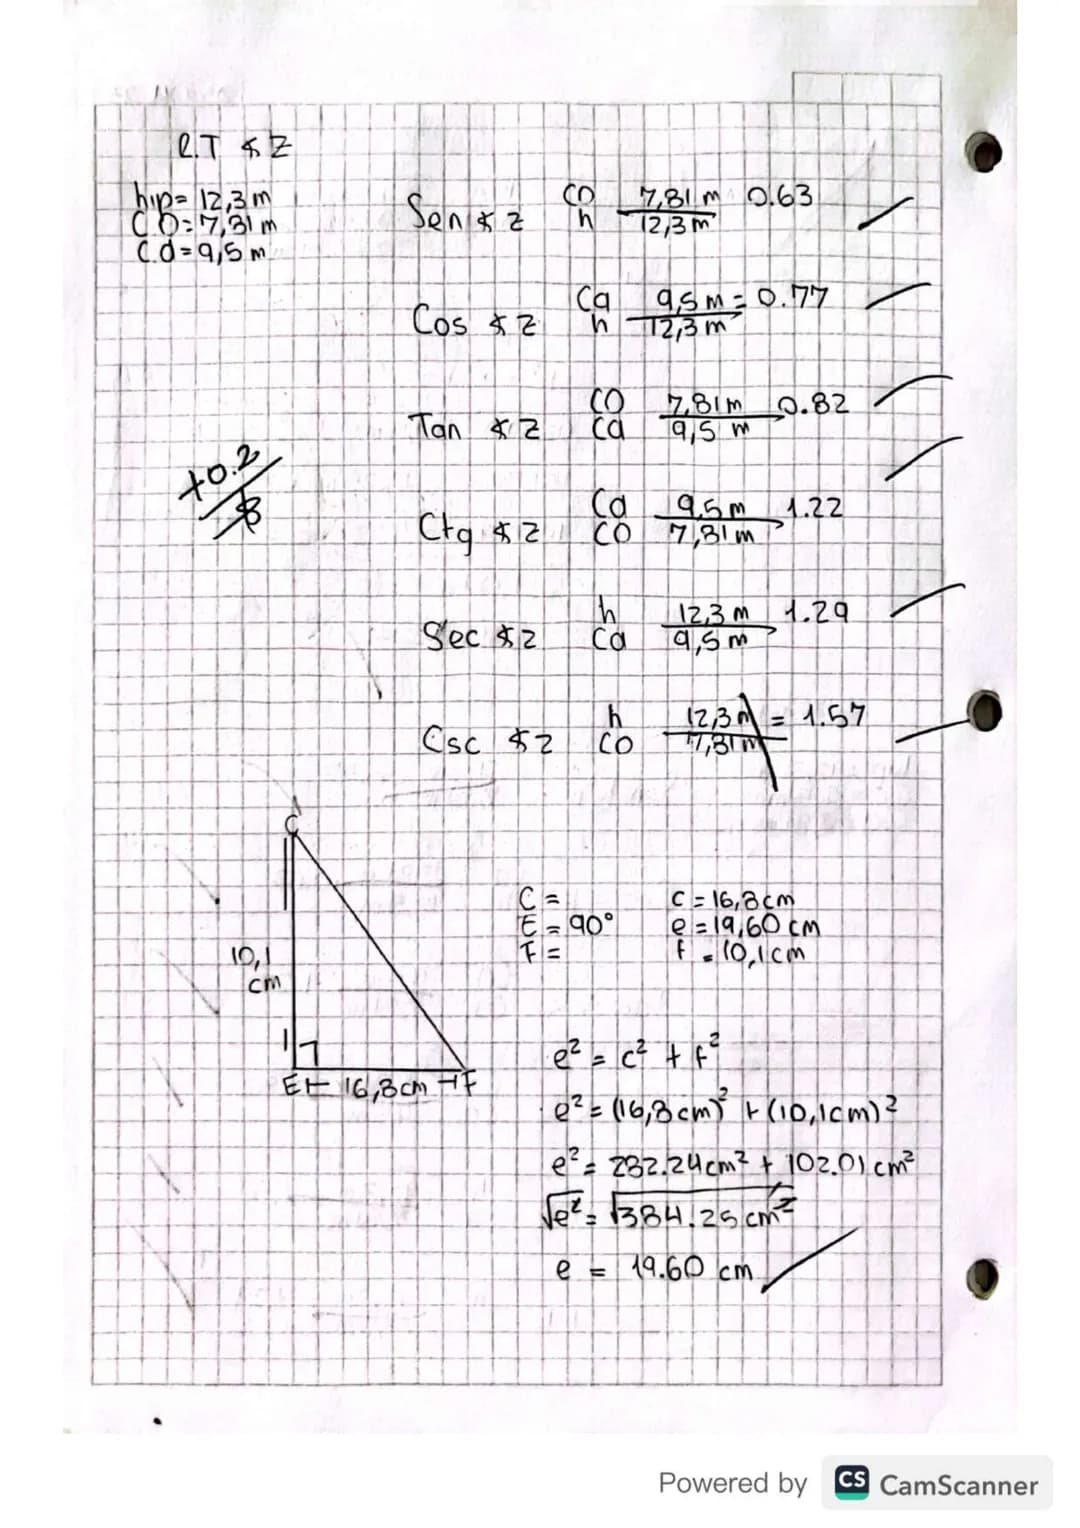 R.T ∡ Z
hip= 12,3 m
CO=7,81 m
C.a=9,5 m
Sen ∡ z CO/h 7,81 m/12,3 m 0.63
Cos ∡ z Ca/h 9,5 m/12,3 m = 0.77
Tan ∡ z CO/Ca 7,81m/9,5 m 0.82
+0.2
Ctg ∡ z Ca/CO 9,5m/7,81m 1.22
Sec ∡ z h/Ca 12,3 m/9,5 m 1.29
Csc ∡ z h/CO 12,3 m/7,81 m = 1.57
C
10,1
cm
E 16,8cm F
C = c = 16,8cm
E = 90° e = 19,60 cm
F = f = 10,1cm
e² = c² + f²
e² = (16,8cm)² + (10,1cm)²
e² = 282.24cm² + 102.01 cm²
√e² = √384.25 cm²
e = 19.60 cm
Powered by CS CamScanner